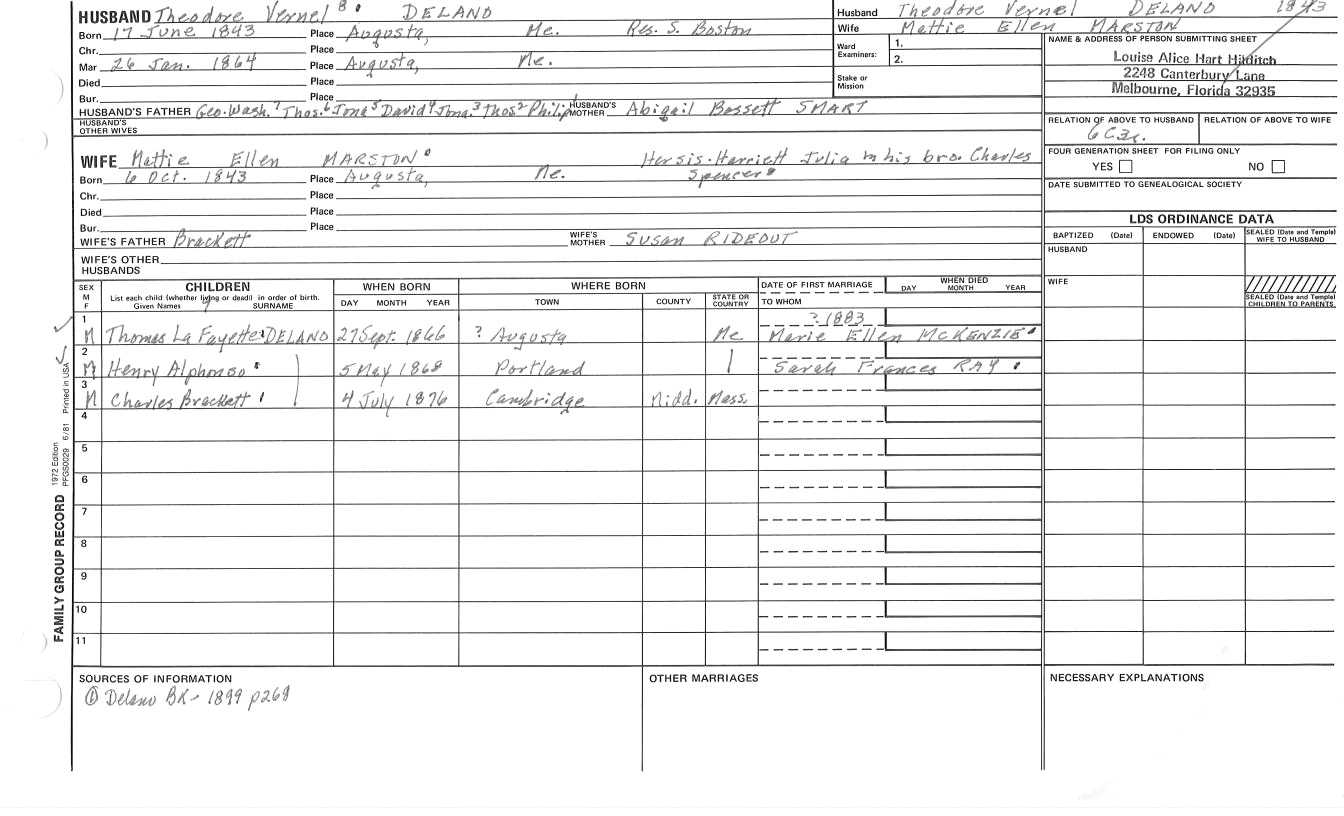 HUSBAND Theodore Vernel 8 DELANO
Born 17 June 1843 Place Augusta, Me. Res. S. Boston
Chr. Place
Mar 26 Jan. 1864 Place Augusta, Me.
Died Place
Bur. Place
HUSBAND'S FATHER Geo. Wash.7 Thos.6 Jona5 David4 Jona.3 Thos2 Philip1 HUSBAND'S MOTHER Abigail Bassett SMART
HUSBAND'S OTHER WIVES
WIFE Mattie Ellen MARSTON Her sis. Harriett Julia m his bro. Charles
Spencer
Born 6 Oct. 1843 Place Augusta, Me.
Chr. Place
Died Place
Bur. Place
WIFE'S FATHER Brackett WIFE'S MOTHER SUSAN RIDEOUT
WIFE'S OTHER HUSBANDS
Husband Theodore Vernel DELANO 1843
Wife Mattie Ellen MARSTON
Ward Examiners: 1.
2.
Stake or Mission
NAME & ADDRESS OF PERSON SUBMITTING SHEET
Louise Alice Hart Hilditch
2248 Canterbury Lane
Melbourne, Florida 32935
RELATION OF ABOVE TO HUSBAND RELATION OF ABOVE TO WIFE
6C3r.
FOUR GENERATION SHEET FOR FILING ONLY
YES NO
DATE SUBMITTED TO GENEALOGICAL SOCIETY
LDS ORDINANCE DATA
BAPTIZED (Date) ENDOWED (Date) SEALED (Date and Temple) WIFE TO HUSBAND
HUSBAND
WIFE
SEALED (Date and Temple) CHILDREN TO PARENTS
SEX M F CHILDREN WHEN BORN WHERE BORN DATE OF FIRST MARRIAGE WHEN DIED
List each child (whether living or dead) in order of birth.
Given Names SURNAME DAY MONTH YEAR TOWN COUNTY STATE OR COUNTRY TO WHOM DAY MONTH YEAR
1 ?.1883
M Thomas La Fayette DELANO 27 Sept. 1866 ? Augusta Me Marie Ellen McKENZIE
2
M Henry Alphonso 5 May 1868 Portland Sarah Frances RAY
3
M Charles Brackett 4 July 1876 Cambridge Midd. Mass.
4
5
6
7
8
9
10
11
FAMILY GROUP RECORD 1972 Edition PFGS0029 6/81 Printed in USA
SOURCES OF INFORMATION
① Delano BK - 1899 p268
OTHER MARRIAGES
NECESSARY EXPLANATIONS